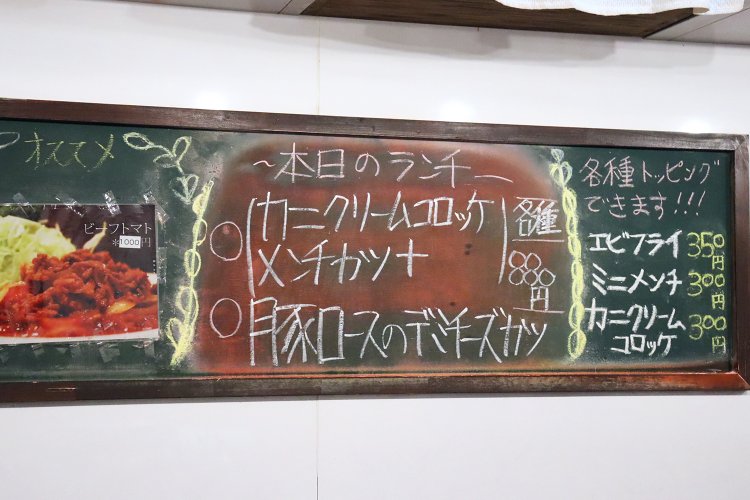 オススメ
ビーフトマト
*1000円
〜本日のランチ〜
○ カニクリームコロッケ
メンチカツ+
各種
880円
○ 豚ロースのデミチーズカツ
各種トッピング
できます!!!
エビフライ 350円
ミニメンチ 300円
カニクリーム
コロッケ 300円